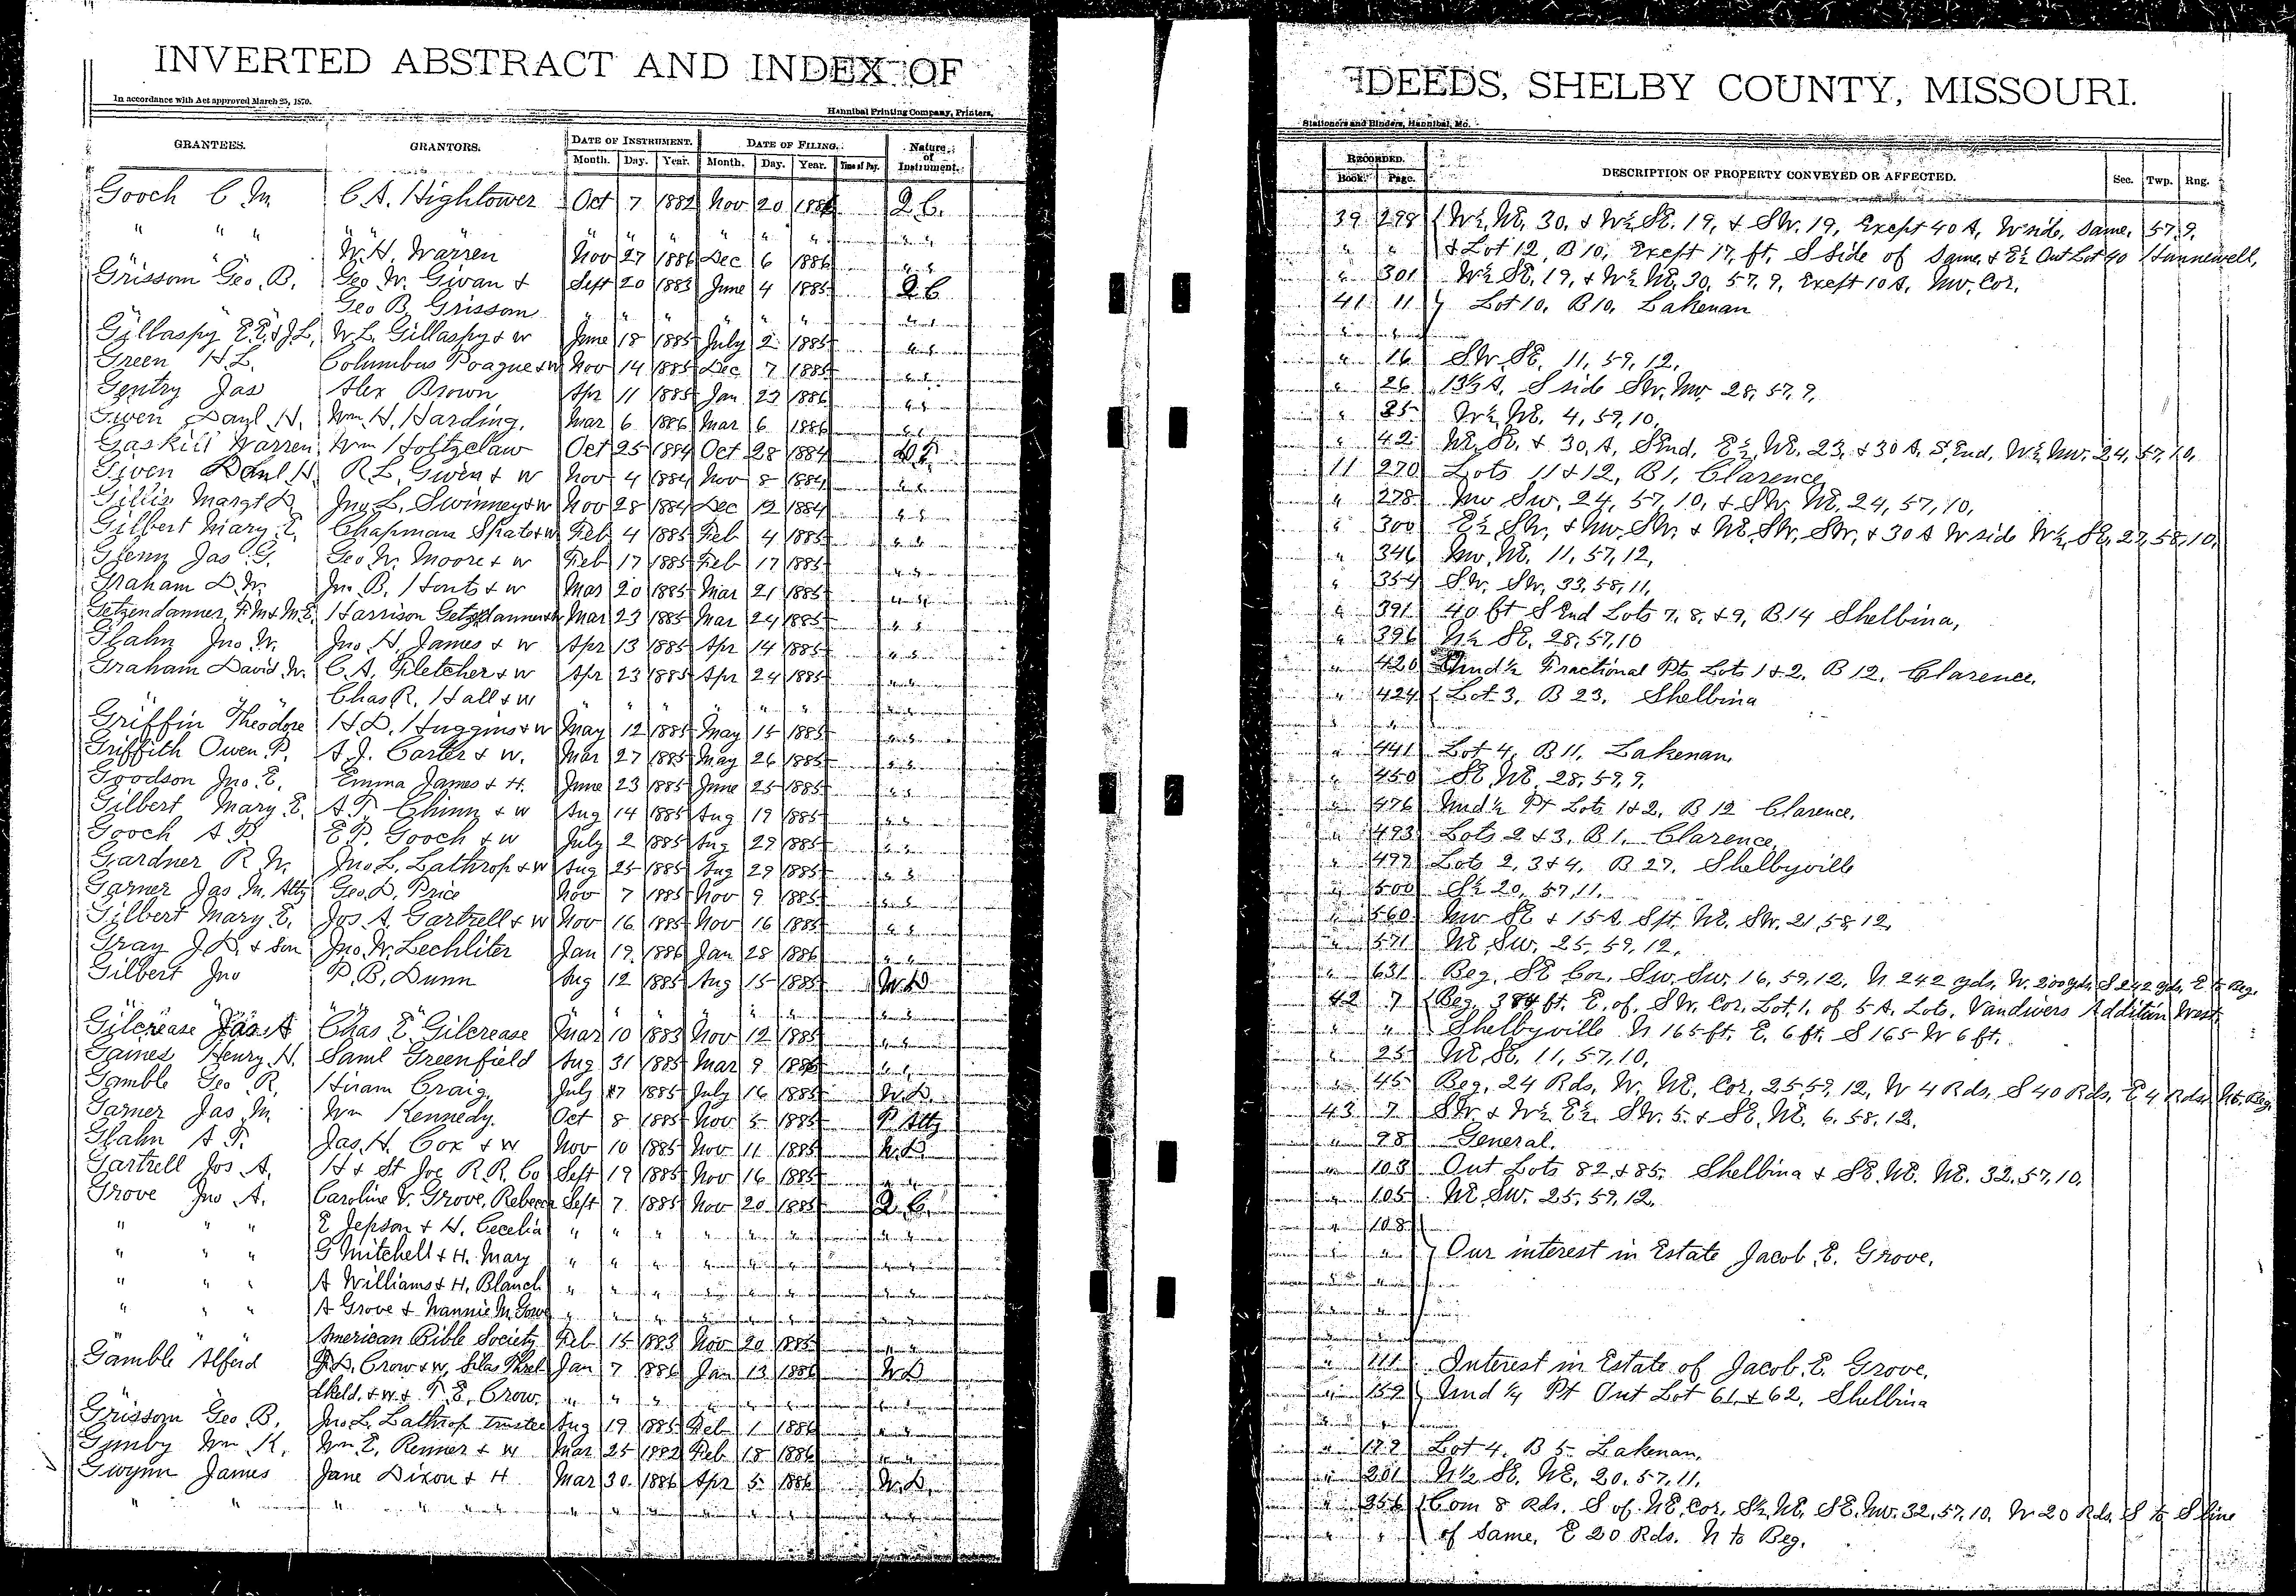 INVERTED ABSTRACT AND INDEX OF
In accordance with Act approved March 25, 1870.
Hannibal Printing Company, Printers,
GRANTEES. GRANTORS. DATE OF INSTRUMENT. DATE OF FILING. Nature of Instrument.
Month. Day. Year. Month. Day. Year. Time of Day.
Gooch C. M. C. A. Hightower Oct 7 1882 Nov 20 1886 Q. C.
" " " " " " " " " " "
W. H. Warren Nov 27 1886 Dec 6 1886 " "
Grissom Geo. B. Geo. W. Givan & Sept 20 1883 June 4 1885 Q C
Geo B. Grissom " " " " " " " "
Gillaspy E. E. & J. L. W. L. Gillaspy & w June 18 1885 July 2 1885 " "
Green H. L. Columbus Poague & w Nov 14 1885 Dec 7 1885 " "
Gentry Jas Alex Brown Apr 11 1885 Jan 23 1886 " "
Gwen Danl H. Wm H. Harding. Mar 6 1886 Mar 6 1886 " "
Gaskill Warren Wm Holtzclaw Oct 25 1884 Oct 28 1884
Gwen Danl H. R. L. Gwen & w Nov 4 1884 Nov 8 1884 " "
Gillis Margt D Jno. L. Swinney & w Nov 28 1884 Dec 12 1884 " "
Gilbert Mary E. Chapman & w Feb 4 1885 Feb 4 1885 " "
Glenn Jas G. Geo W. Moore & w Feb 17 1885 Feb 17 1885 " "
Graham D. W. Jno. B. Houts & w Mar 20 1885 Mar 21 1885 " "
Getzendanner, F. M & M. E. Harrison Getzendanner & w Mar 23 1885 Mar 24 1885 " "
Glahn Jno. W. Jno. H. James & w Apr 13 1885 Apr 14 1885 " "
Graham David W. C. A. Fletcher & w Apr 23 1885 Apr 24 1885 " "
" " Chas R. Hall & w " " " " " " " "
Griffin Theodore H. D. Huggins & w May 12 1885 May 15 1885 " "
Griffith Owen P. A. J. Carter & w. Mar 27 1885 May 26 1885 " "
Goodson Jno. E. Emma James & H. June 23 1885 June 25 1885 " "
Gilbert Mary E. A. T. Chinn & w Aug 14 1885 Aug 19 1885 " "
Gooch A P. E. P. Gooch & w July 2 1885 Aug 29 1885 " "
Gardner R W. Jno. L. Lathrop & w Aug 25 1885 Aug 29 1885 " "
Garner Jas M. Atty Geo. D. Price Nov 7 1885 Nov 9 1885 " "
Gilbert Mary E. Jos A. Gartrell & w Nov 16 1885 Nov 16 1885 " "
Gray J. D. & Son Jno. W. Lechliter Jan 19 1886 Jan 28 1886 " "
Gilbert Jno P. B. Dunn Aug 12 1885 Aug 15 1885 W. D
" " " " " " " " " " "
Gilcrease A Chas E Gilcrease Mar 10 1883 Nov 12 1885 " "
Gaines Henry H. Saml Greenfield Aug 31 1885 Mar 9 1886 " "
Gamble Geo R. Hiram Craig July 7 1885 July 16 1885 W. D.
Garner Jas M. Wm Kennedy. Oct 8 1885 Nov 5 1885 P. Atty
Glahn A F. Jas. H. Cox & w Nov 10 1885 Nov 11 1885 W. D
Gartrell Jos A. H & St Joe R. R. Co Sept 19 1885 Nov 16 1885 " "
Grove Jno A. Caroline V. Grove, Rebecca Sept 7 1885 Nov 20 1885 Q. C.
" " " E Jepson & H. Cecelia " " " " " " " "
" " " G Mitchell & H. Mary " " " " " " " "
" " " A Williams & H. Blanch " " " " " " " "
" " " A Grove & Nannie M. " " " " " " " "
" " " American Bible Society Feb 15 1883 Nov 20 1885 " "
Gamble Alferd J. D. Crow & w, Silas Threl Jan 7 1886 Jan 13 1886 W. D
keld. & w. & T. E. Crow. " " " " " " " "
Grissom Geo B. Jno. L. Lathrop trustee Aug 19 1885 Feb 1 1886 " "
Gunby Wm K. Wm. E. Renner & w Mar 25 1882 Feb 18 1886 " "
Gwynn James Jane Dixon & H Mar 30 1886 Apr 5 1886 W. D.
" " " " " " " " " " " "
DEEDS, SHELBY COUNTY, MISSOURI.
Stationers and Binders, Hannibal, Mo.
RECORDED. DESCRIPTION OF PROPERTY CONVEYED OR AFFECTED. Sec. Twp. Rng.
Book. Page.
39 298 W½ NE, 30, & W½ SE. 19, & SW. 19, Except 40 A, W side, Same, 57, 9,
" " & Lot 12, B 10, Except 17, ft. S side of Same, & E½ Out Lot 40 Hunnewell,
" 301 W½ SE, 19, & W½ NE, 30, 57, 9, Except 10 A, NW. Cor.
41 11 Lot 10, B 10, Lakenan
" "
" 16 SW. SE. 11, 59, 12,
" 26 13⅓ A. S side SW. NW. 28, 57, 9,
" 85 W½ NE. 4, 59, 10,
" 42 NE. SE. & 30, A, S End, E½, NE. 23, & 30 A. S. End, W½ NW. 24, 57, 10,
11 270 Lots 11 & 12, B 1, Clarence
" 278 NW SW, 24, 57, 10, & SW. NE, 24, 57, 10,
" 300 E½ SW, & NW. SW. & NE. SW. SW, & 30 A W side W½, SE, 27, 58, 10,
" 346 NW, NE, 11, 57, 12,
" 354 SW, SW, 33, 58, 11,
" 391 40 ft S End Lots 7, 8, & 9, B 14 Shelbina,
" 396 N½ SE, 28, 57, 10
" 420 Und ½ Fractional Pt. Lots 1 & 2, B 12, Clarence,
" 424 Lot 3, B 23, Shelbina
" "
" 441 Lot 4, B 11, Lakenan,
" 450 SE, NE, 28, 59, 9,
" 476 Und ½ Pt Lots 1 & 2, B 12 Clarence,
" 493 Lots 2 & 3, B 1, Clarence,
" 499 Lots 2, 3 & 4, B 27, Shelbyville
" 500 S½ 20, 57, 11,
" 560 NW SE & 15 A. S pt. NE, SW. 21, 58, 12,
" 571 NE SW. 25, 59, 12,
" 631 Beg. SE Cor. SW. SW. 16, 59, 12, N 242 yds, W. 200 yds, S 242 yds, E to Beg.
42 7 Beg. 384 ft. E. of. SW. Cor. Lot 1, of 5 A. Lots, Vandivers Addition West,
" " Shelbyville N 165 ft. E. 6 ft. S 165 W 6 ft.
" 25 NE SE. 11, 57, 10,
" 45 Beg. 24 Rds, W. NE, Cor. 25, 59, 12, W 4 Rds, S 40 Rds, E 4 Rds, N to Beg.
43 7 SW & W½ E½ SW. 5, & SE, NE, 6, 58, 12,
" 98 General.
" 103 Out Lots 82 & 85, Shelbina & SE. NE. NE. 32, 57, 10,
" 105 NE, SW. 25, 59, 12,
" 108
" " Our interest in Estate Jacob E. Grove,
" "
" "
" "
" 111 Interest in Estate of Jacob E. Grove,
" 159 Und ¼ Pt Out Lot 61 & 62, Shelbina
" "
" 199 Lot 4, B 5 Lakenan,
" 201 N½ SE, NE, 20, 57, 11,
" 356 Com 8 Rds. S of NE, Cor, S½ NE, SE. NW. 32, 57, 10, W 20 Rds, S to S line
" " of Same, E 20 Rds. N to Beg.